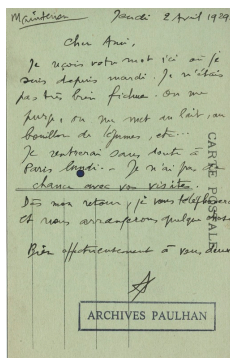 Maintenon Jeudi 2 Avril 1929
Cher Ami,
Je reçois votre mot ici où je
suis depuis mardi. Je n'étais
pas très bien fichue. On me
purge, on me met au lait, au
bouillon de légumes, etc...
Je rentrerai sans doute à
Paris lundi. - Je n'ai pas de
chance avec vos visites.
Dès mon retour, je vous téléphonerai
et nous arrangerons quelque chose
Bien affectueusement à vous deux
CARTE POSTALE
ARCHIVES PAULHAN